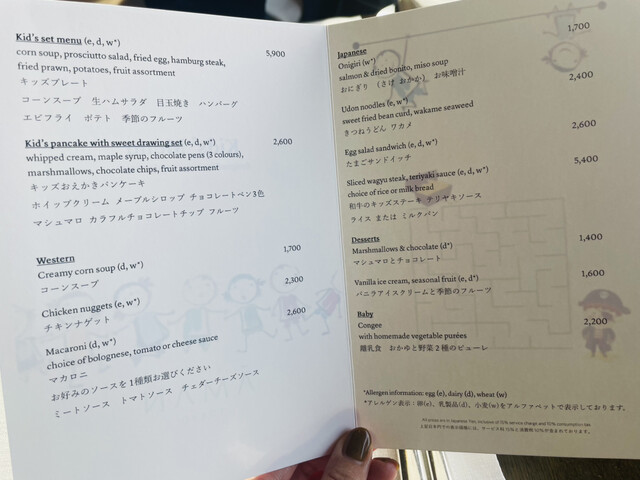 Kid's set menu (e, d, w*) 5,900
corn soup, prosciutto salad, fried egg, hamburg steak,
fried prawn, potatoes, fruit assortment
キッズプレート
コーンスープ 生ハムサラダ 目玉焼き ハンバーグ
エビフライ ポテト 季節のフルーツ
Kid's pancake with sweet drawing set (e, d, w*) 2,600
whipped cream, maple syrup, chocolate pens (3 colours),
marshmallows, chocolate chips, fruit assortment
キッズおえかきパンケーキ
ホイップクリーム メープルシロップ チョコレートペン3色
マシュマロ カラフルチョコレートチップ フルーツ
Western
Creamy corn soup (d, w*) 1,700
コーンスープ
Chicken nuggets (e, w*) 2,300
チキンナゲット
Macaroni (d, w*) 2,600
choice of bolognese, tomato or cheese sauce
マカロニ
お好みのソースを1種類お選びください
ミートソース トマトソース チェダーチーズソース
Japanese
Onigiri (w*) 1,700
salmon & dried bonito, miso soup
おにぎり (さけ おかか) お味噌汁
Udon noodles (e, w*) 2,400
sweet fried bean curd, wakame seaweed
きつねうどん ワカメ
Egg salad sandwich (e, d, w*) 2,600
たまごサンドイッチ
Sliced wagyu steak, teriyaki sauce (e, d, w*) 5,400
choice of rice or milk bread
和牛のキッズステーキ テリヤキソース
ライス または ミルクパン
Desserts
Marshmallows & chocolate (d*) 1,400
マシュマロとチョコレート
Vanilla ice cream, seasonal fruit (e, d*) 1,600
バニラアイスクリームと季節のフルーツ
Baby
Congee 2,200
with homemade vegetable purées
離乳食 おかゆと野菜2種のピューレ
*Allergen information: egg (e), dairy (d), wheat (w)
*アレルゲン表示：卵(e)、乳製品(d)、小麦(w)をアルファベットで表示しております。
All prices are in Japanese Yen, inclusive of 15% service charge and 10% consumption tax
上記日本円の表示価格には、サービス料15%と消費税10%が含まれております。